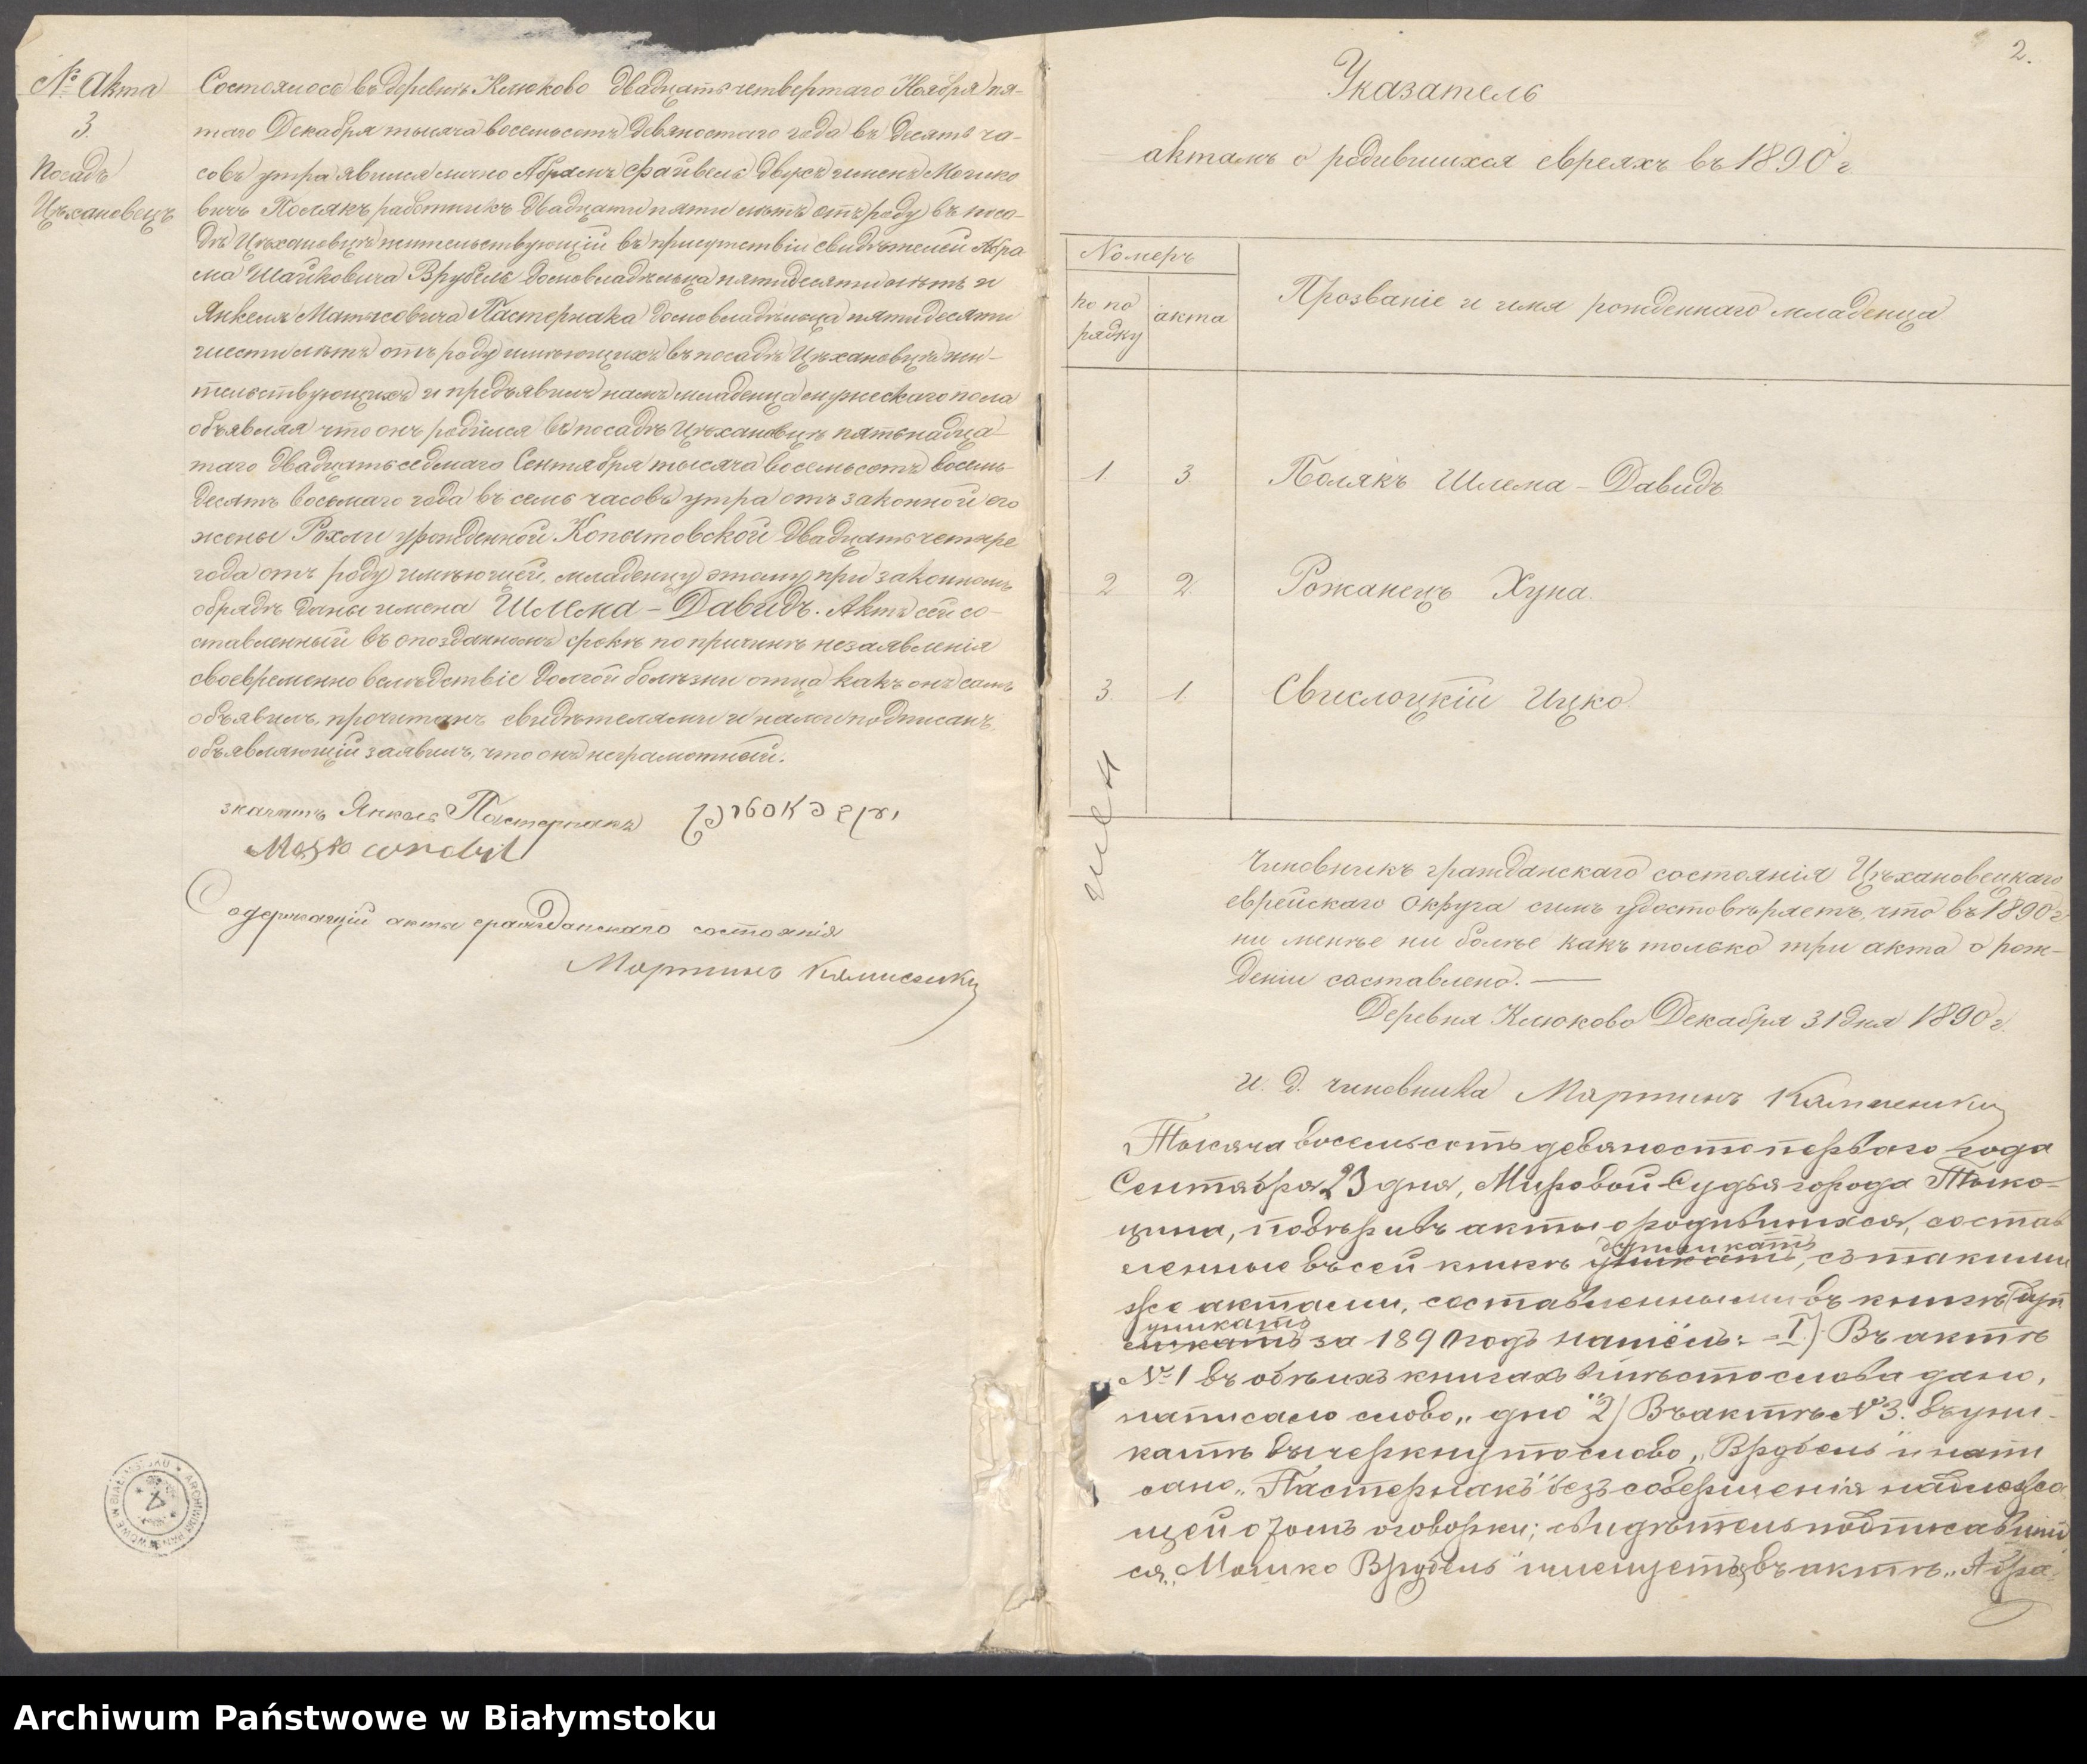 № Акта
3.
Посадъ
Цѣхановецъ
Состоялось въ деревнѣ Клюково двадцать четвертаго Ноября пя-
таго Декабря тысяча восемьсотъ девяностаго года въ десять ча-
совъ утра явился лично Абрамъ Файвель двухъ именъ Мошко
вичъ Полякъ работникъ двадцати пяти лѣтъ отъ роду въ поса-
дѣ Цѣхановцѣ жительствующій въ присутствіи свидѣтелей Абра
ма Шайковича Врубель домовладѣльца пятидесяти лѣтъ и
Янкеля Матысовича Пастернака домовладѣльца пятидесяти
шести лѣтъ отъ роду имѣющихъ въ посадѣ Цѣхановцѣ жи-
тельствующихъ и предъявилъ намъ младенца мужескаго пола
объявляя что онъ родился въ посадѣ Цѣхановцѣ пятьнадца-
таго двадцать седмаго Сентября тысяча восемьсотъ восемь-
десятъ восьмаго года въ семь часовъ утра отъ законной его
жены Рохли урожденной Копытовской двадцать четыре
года отъ роду имѣющей, младенцу этому при законномъ
обрядѣ даны имена Шлема-Давидъ. Актъ сей со-
ставленный въ опозданномъ срокѣ по причинѣ незаявленія
своевременно вслѣдствіе долгой болѣзни отца какъ онъ самъ
объявилъ, прочитанъ свидѣтелями и нами подписанъ,
объявляющій заявилъ, что онъ неграмотный.
Янкель Пастернакъ
Содержащій акты гражданскаго состоянія
Мартинъ
2.
Указатель
актамъ о родившихся евреяхъ въ 1890 г.
Номеръ
по по
рядку
акта
Прозваніе и имя рожденнаго младенца
1. 3 Полякъ Шлема-Давидъ
2 2. Рожанецъ Хуна.
3. 1. Свислоцкій Ицко.
Чиновникъ гражданскаго состоянія Цѣхановецкаго
еврейскаго округа симъ удостовѣряетъ, что въ 1890 г.
ни менѣе ни болѣе какъ только три акта о рож-
деніи составлено.—
Деревня Клюково Декабря 31 дня 1890 г.
и. д. чиновника Мартинъ
Тысяча восемьсотъ девяносто перваго года
Сентября 23 дня, Мировой Судья города Тыко-
цина, повѣривъ акты о родившихся, состав
ленные въ сей книгѣ уникатъ дупликатъ, съ такими
же актами, составленными въ книгѣ дуп
ликатъ уникатъ за 1890 годъ нашелъ: I) Въ актѣ
№ 1 въ обѣихъ книгахъ вмѣсто слова дано,
написало слово „дно“ 2) Въ актѣ № 3. въ уни-
катѣ вычеркнуто слово „Врубель“ и напи
сано „Пастернакъ“ безъ совершенія надлежа
щей о томъ оговорки; свидѣтель подписавшій
ся „Мошко Врубель“ въ актѣ „Абра-
ARCHIWUM PAŃSTWOWE W BIAŁYMSTOKU
Archiwum Państwowe w Białymstoku